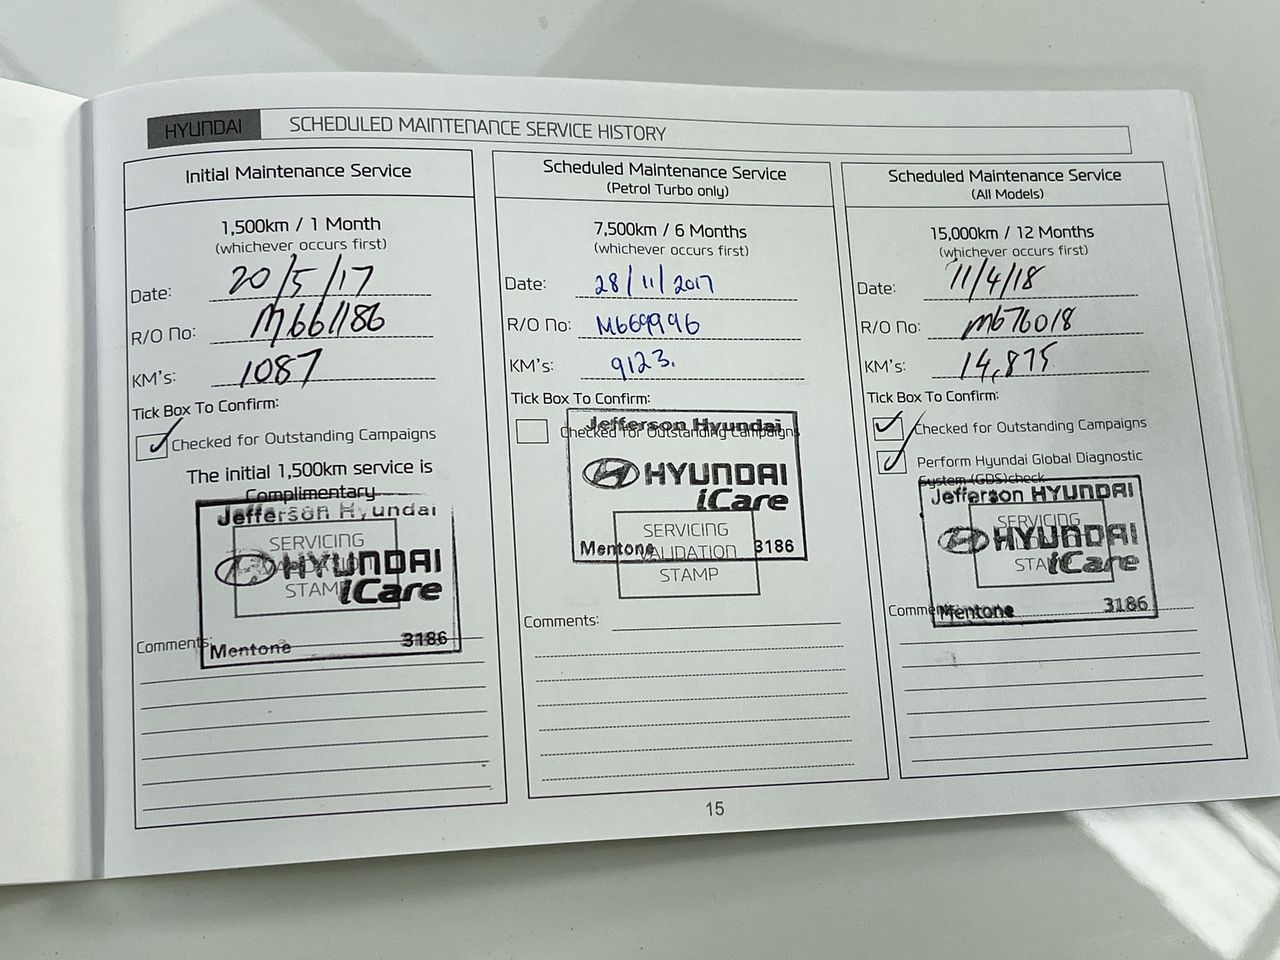 HYUNDAI
SCHEDULED MAINTENANCE SERVICE HISTORY
Initial Maintenance Service
1,500km / 1 Month
(whichever occurs first)
Date: 20/5/17
R/O No: M661186
KM's: 1087
Tick Box To Confirm:
Checked for Outstanding Campaigns
The initial 1,500km service is
Complimentary
Jefferson Hyundai
SERVICING
HYUNDAI
STAMP
iCare
Comments:
Mentone 3186
Scheduled Maintenance Service
(Petrol Turbo only)
7,500km / 6 Months
(whichever occurs first)
Date: 28/11/2017
R/O No: M669996
KM's: 9123.
Tick Box To Confirm:
Jefferson Hyundai
Checked for Outstanding Campaigns
HYUNDAI
iCare
SERVICING
Mentone 3186
VALIDATION
STAMP
Comments:
Scheduled Maintenance Service
(All Models)
15,000km / 12 Months
(whichever occurs first)
Date: 11/4/18
R/O No: M676018
KM's: 14,875
Tick Box To Confirm:
Checked for Outstanding Campaigns
Perform Hyundai Global Diagnostic
System (GDS)check
Jefferson HYUNDAI
SERVICING
HYUNDAI
iCare
Mentone 3186
15